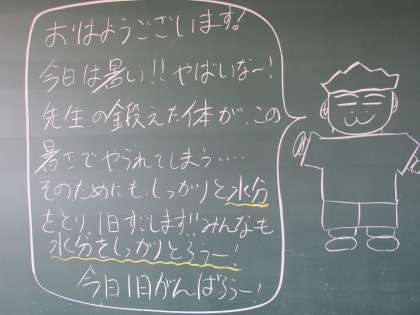 おはようございます!
今日は暑い!!やばいな〜!
先生の鍛えた体が、この
暑さでやられてしまう‥‥
そのためにも、しっかりと水分
をとり、1日すごします!!みんなも
水分をしっかりとろうー!
今日1日がんばろうー!